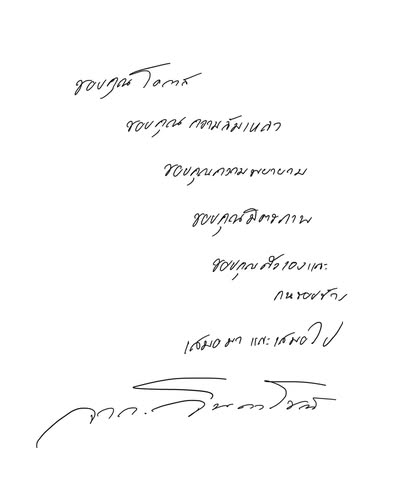 ขอบคุณ โอกาส
ขอบคุณ ความล้มเหลว
ขอบคุณความพยายาม
ขอบคุณมิตรภาพ
ขอบคุณตัวเองและ
คนรอบข้าง
เสมอมา และเสมอไป
จาก.